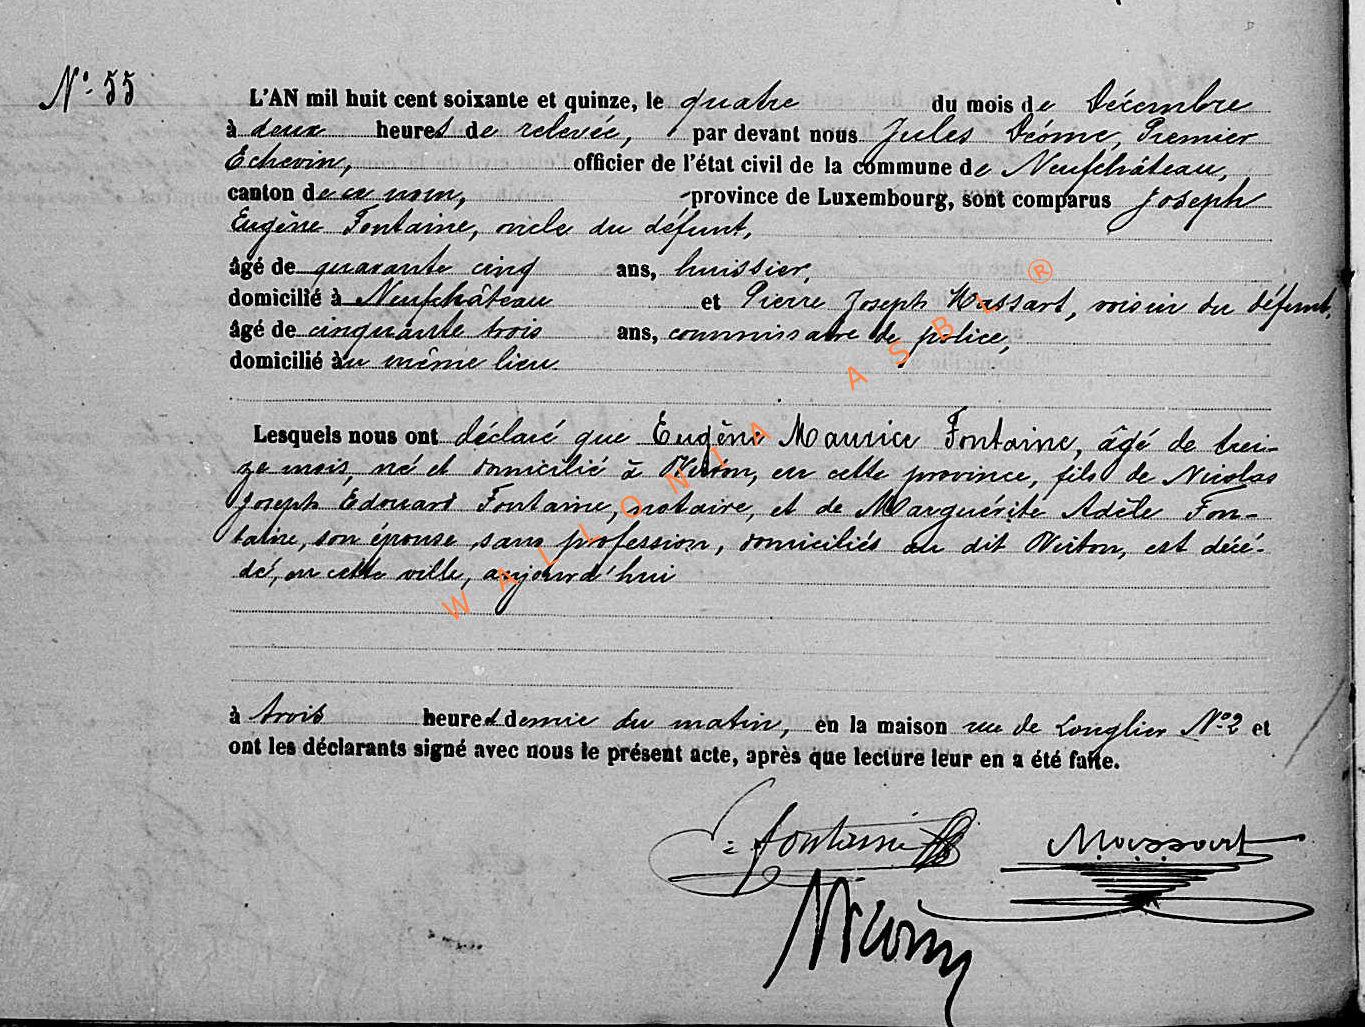 N° 55
L'AN mil huit cent soixante et quinze, le quatre du mois de Décembre
à deux heures de relevée, par devant nous Jules Déome, Premier
Echevin, officier de l'état civil de la commune de Neufchâteau,
canton de ce nom, province de Luxembourg, sont comparus Joseph
Eugène Fontaine, oncle du défunt,
âgé de quarante cinq ans, huissier,
domicilié à Neufchâteau et Pierre Joseph Massart, voisin du défunt,
âgé de cinquante trois ans, commissaire de police,
domicilié au même lieu.
Lesquels nous ont déclaré que Eugène Maurice Fontaine, âgé de trei-
ze mois, né et domicilié à Virton, en cette province, fils de Nicolas
Joseph Edouard Fontaine, notaire, et de Marguérite Adèle Fon-
taine, son épouse, sans profession, domiciliés au dit Virton, est décé-
dé, en cette ville, aujourd'hui
à trois heures et demie du matin, en la maison rue de Longlier N° 2 et
ont les déclarants signé avec nous le présent acte, après que lecture leur en a été faite.
E. Fontaine
Massart
WALLONIA ASBL ®